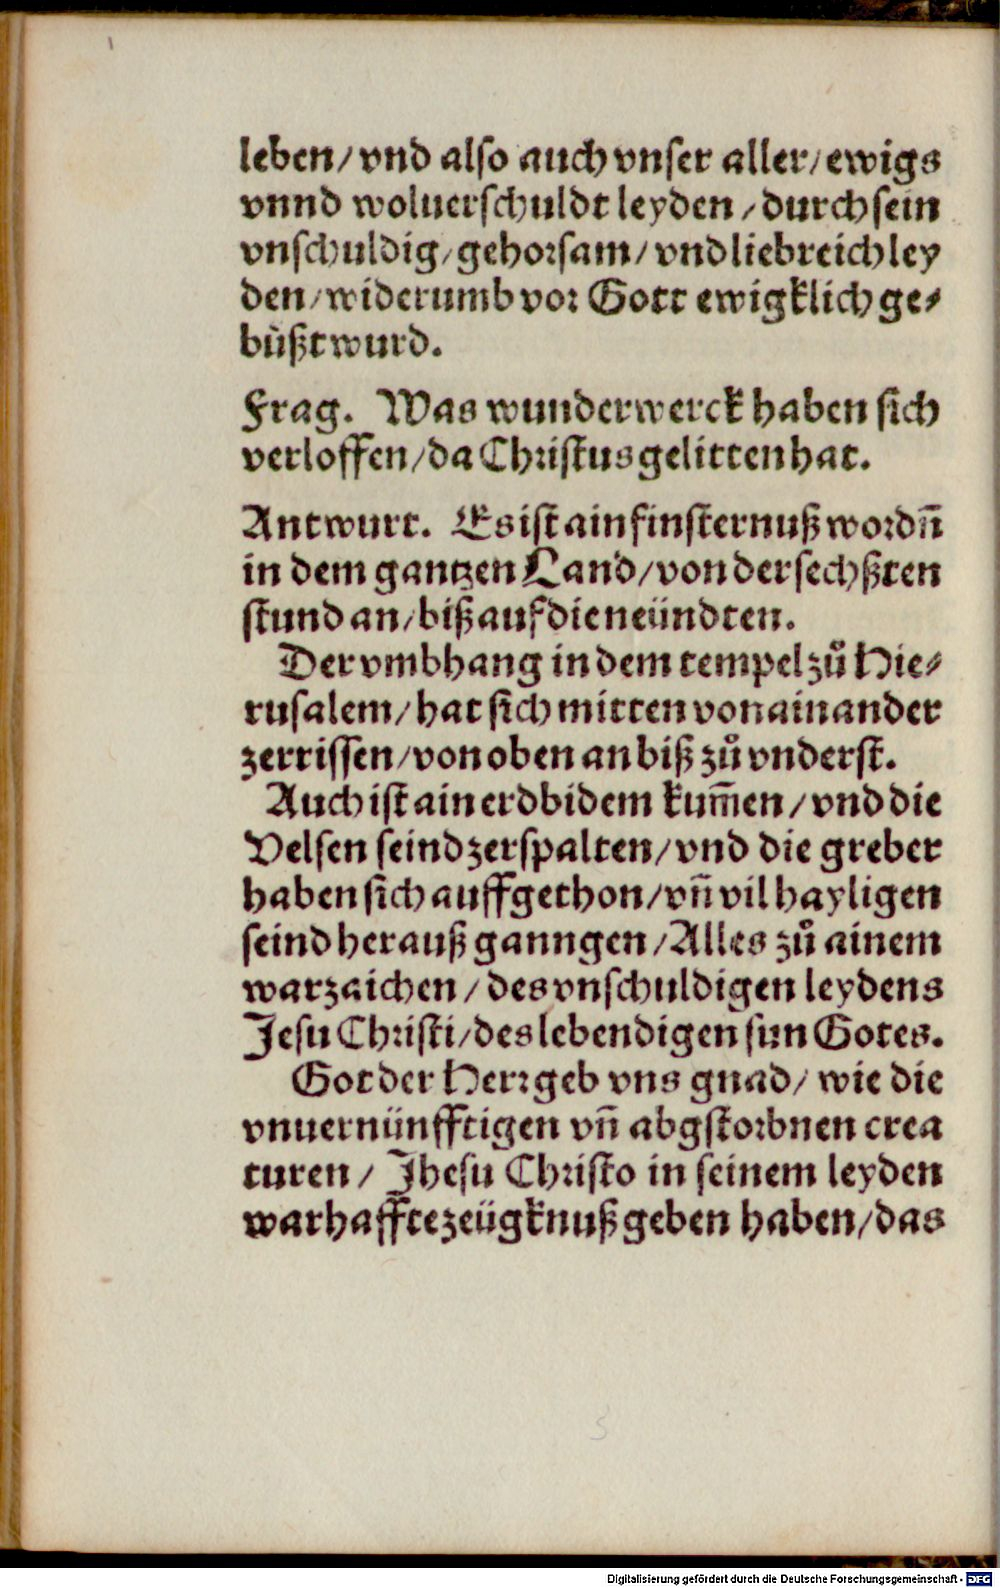 leben/ vnd also auch vnser aller/ ewigs
vnnd woluerschuldt leyden/ durch sein
vnschuldig/ gehorsam/ vnd liebreich ley
den/ widerumb vor Gott ewigklich ge⸗
buͤßt wurd.
Frag. Was wunderwerck haben sich
verloffen/ da Christus gelitten hat.
Antwurt. Es ist ain finsternuß wordn̄
in dem gantzen Land/ von der sechßten
stund an/ biß auf die neündten.
Der vmbhang in dem tempel zů Hie⸗
rusalem/ hat sich mitten von ainander
zerrissen/ von oben an biß zů vnderst.
Auch ist ain erdbidem kum̄en/ vnd die
Velsen seind zerspalten/ vnd die greber
haben sich auffgethon/ vn̄ vil hayligen
seind herauß ganngen/ Alles zů ainem
warzaichen/ des vnschuldigen leydens
Jesu Christi/ des lebendigen sun Gotes.
Got der Herr geb vns gnad/ wie die
vnuernünfftigen vn̄ abgstorbnen crea
turen/ Jhesu Christo in seinem leyden
warhaffte zeügknuß geben haben/ das
3
Digitalisierung gefördert durch die Deutsche Forschungsgemeinschaft - DFG